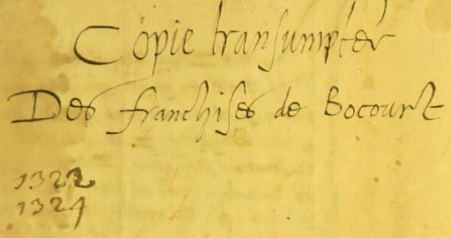 Copie transumpter
Des franchises de Bocourt
1322
1324